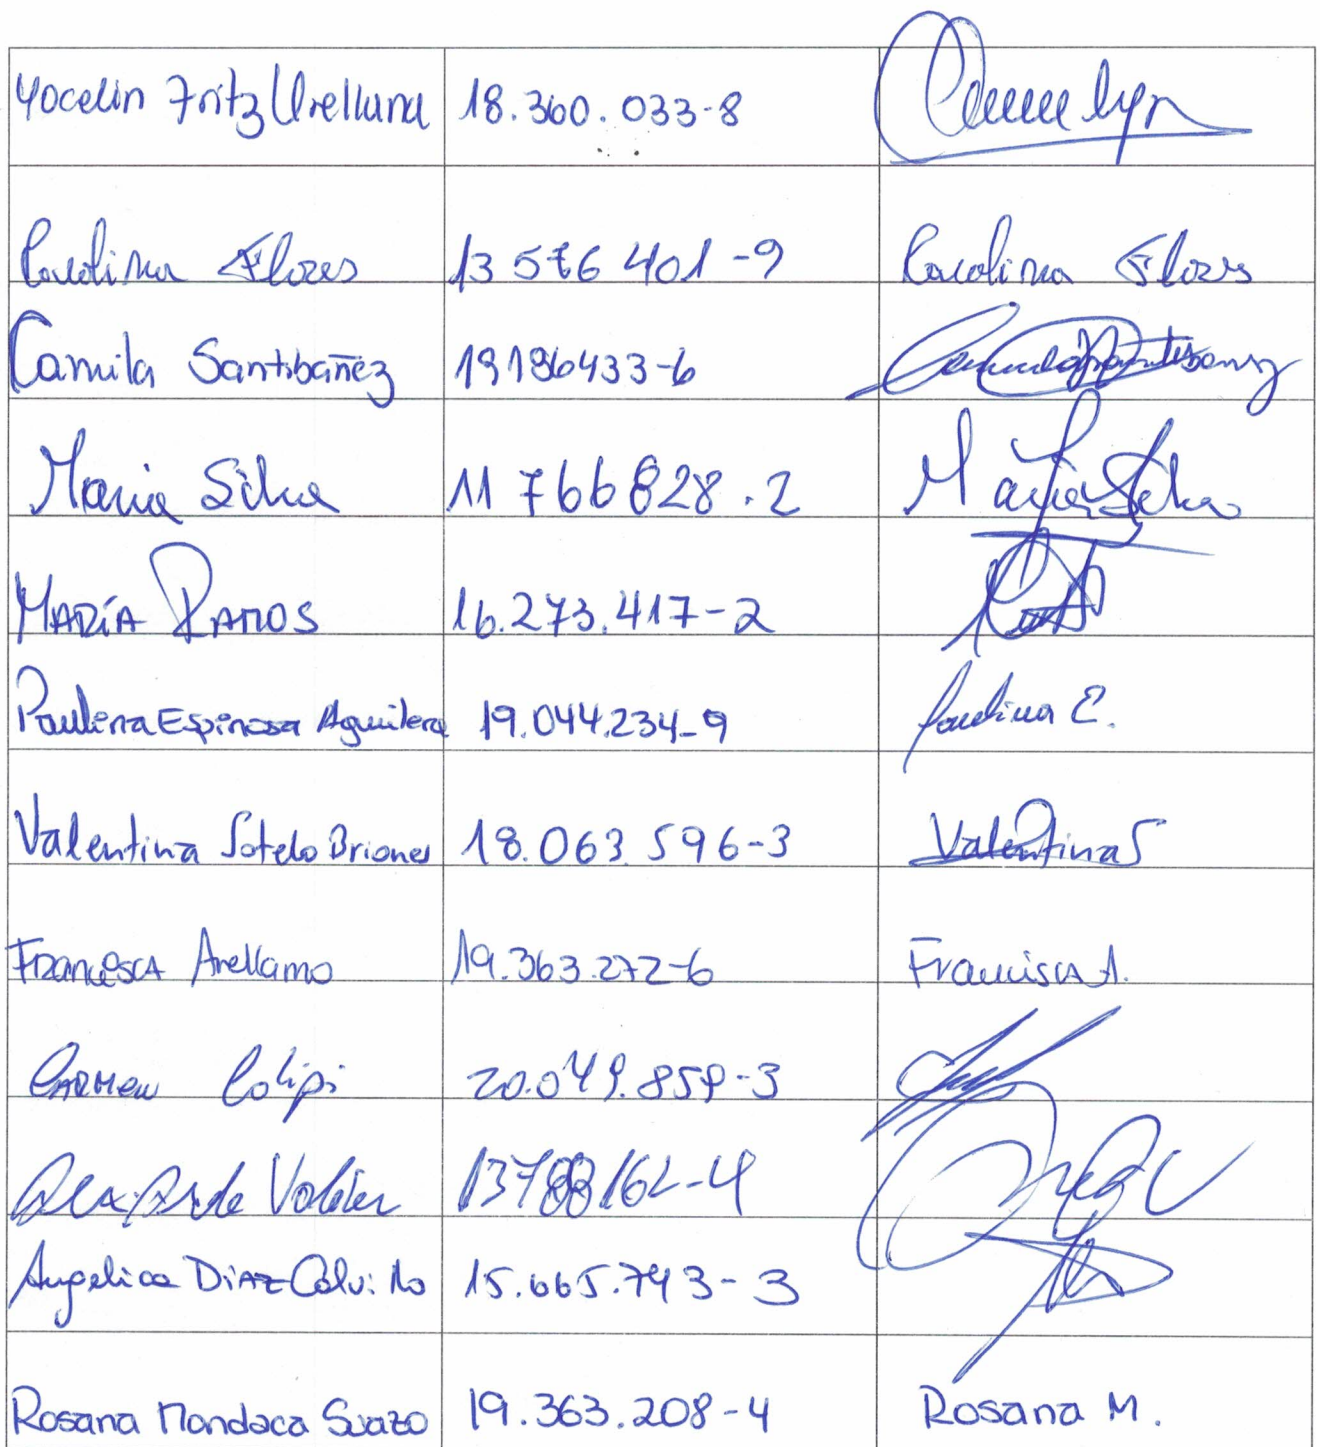 Yocelin Fritz Orellana 18.360.033-8
Carolina Flores 13 576 401-9 Carolina Flores
Camila Santibañez 19196433-6
Maria Silva 11 766 828.2 Maria Silva
MARÍA RAMOS 16.273.417-2
Paulina Espinosa Aguilera 19.044.234-9 Paulina E.
Valentina Sotelo Briones 18.063.596-3 Valentina S
Francisca Arellano 19.363.272-6 Francisca A.
CARMEN Colipi 20.049.859-3
13788162-4
Angelica DIAZ 15.665.743-3
Rosana Mondaca Suazo 19.363.208-4 Rosana M.